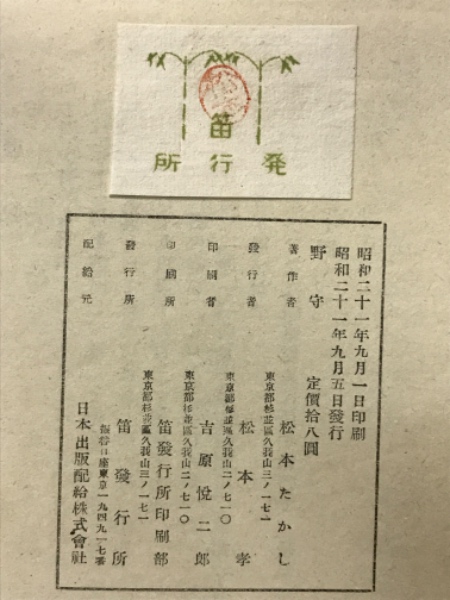 笛
発行所
昭和二十一年九月一日印刷
昭和二十一年九月五日發行
野守 定價拾八圓
著作者 松本たかし
東京都杉並區久我山三ノ一七一
發行者 松本孝
東京都杉並區久我山二ノ七一〇
印刷者 吉原悅二郎
東京都杉並區久我山二ノ七一〇
印刷所 笛發行所印刷部
東京都杉並區久我山三ノ一七一
發行所 笛發行所
振替口座東京一九四九一七番
配給元 日本出版配給株式會社